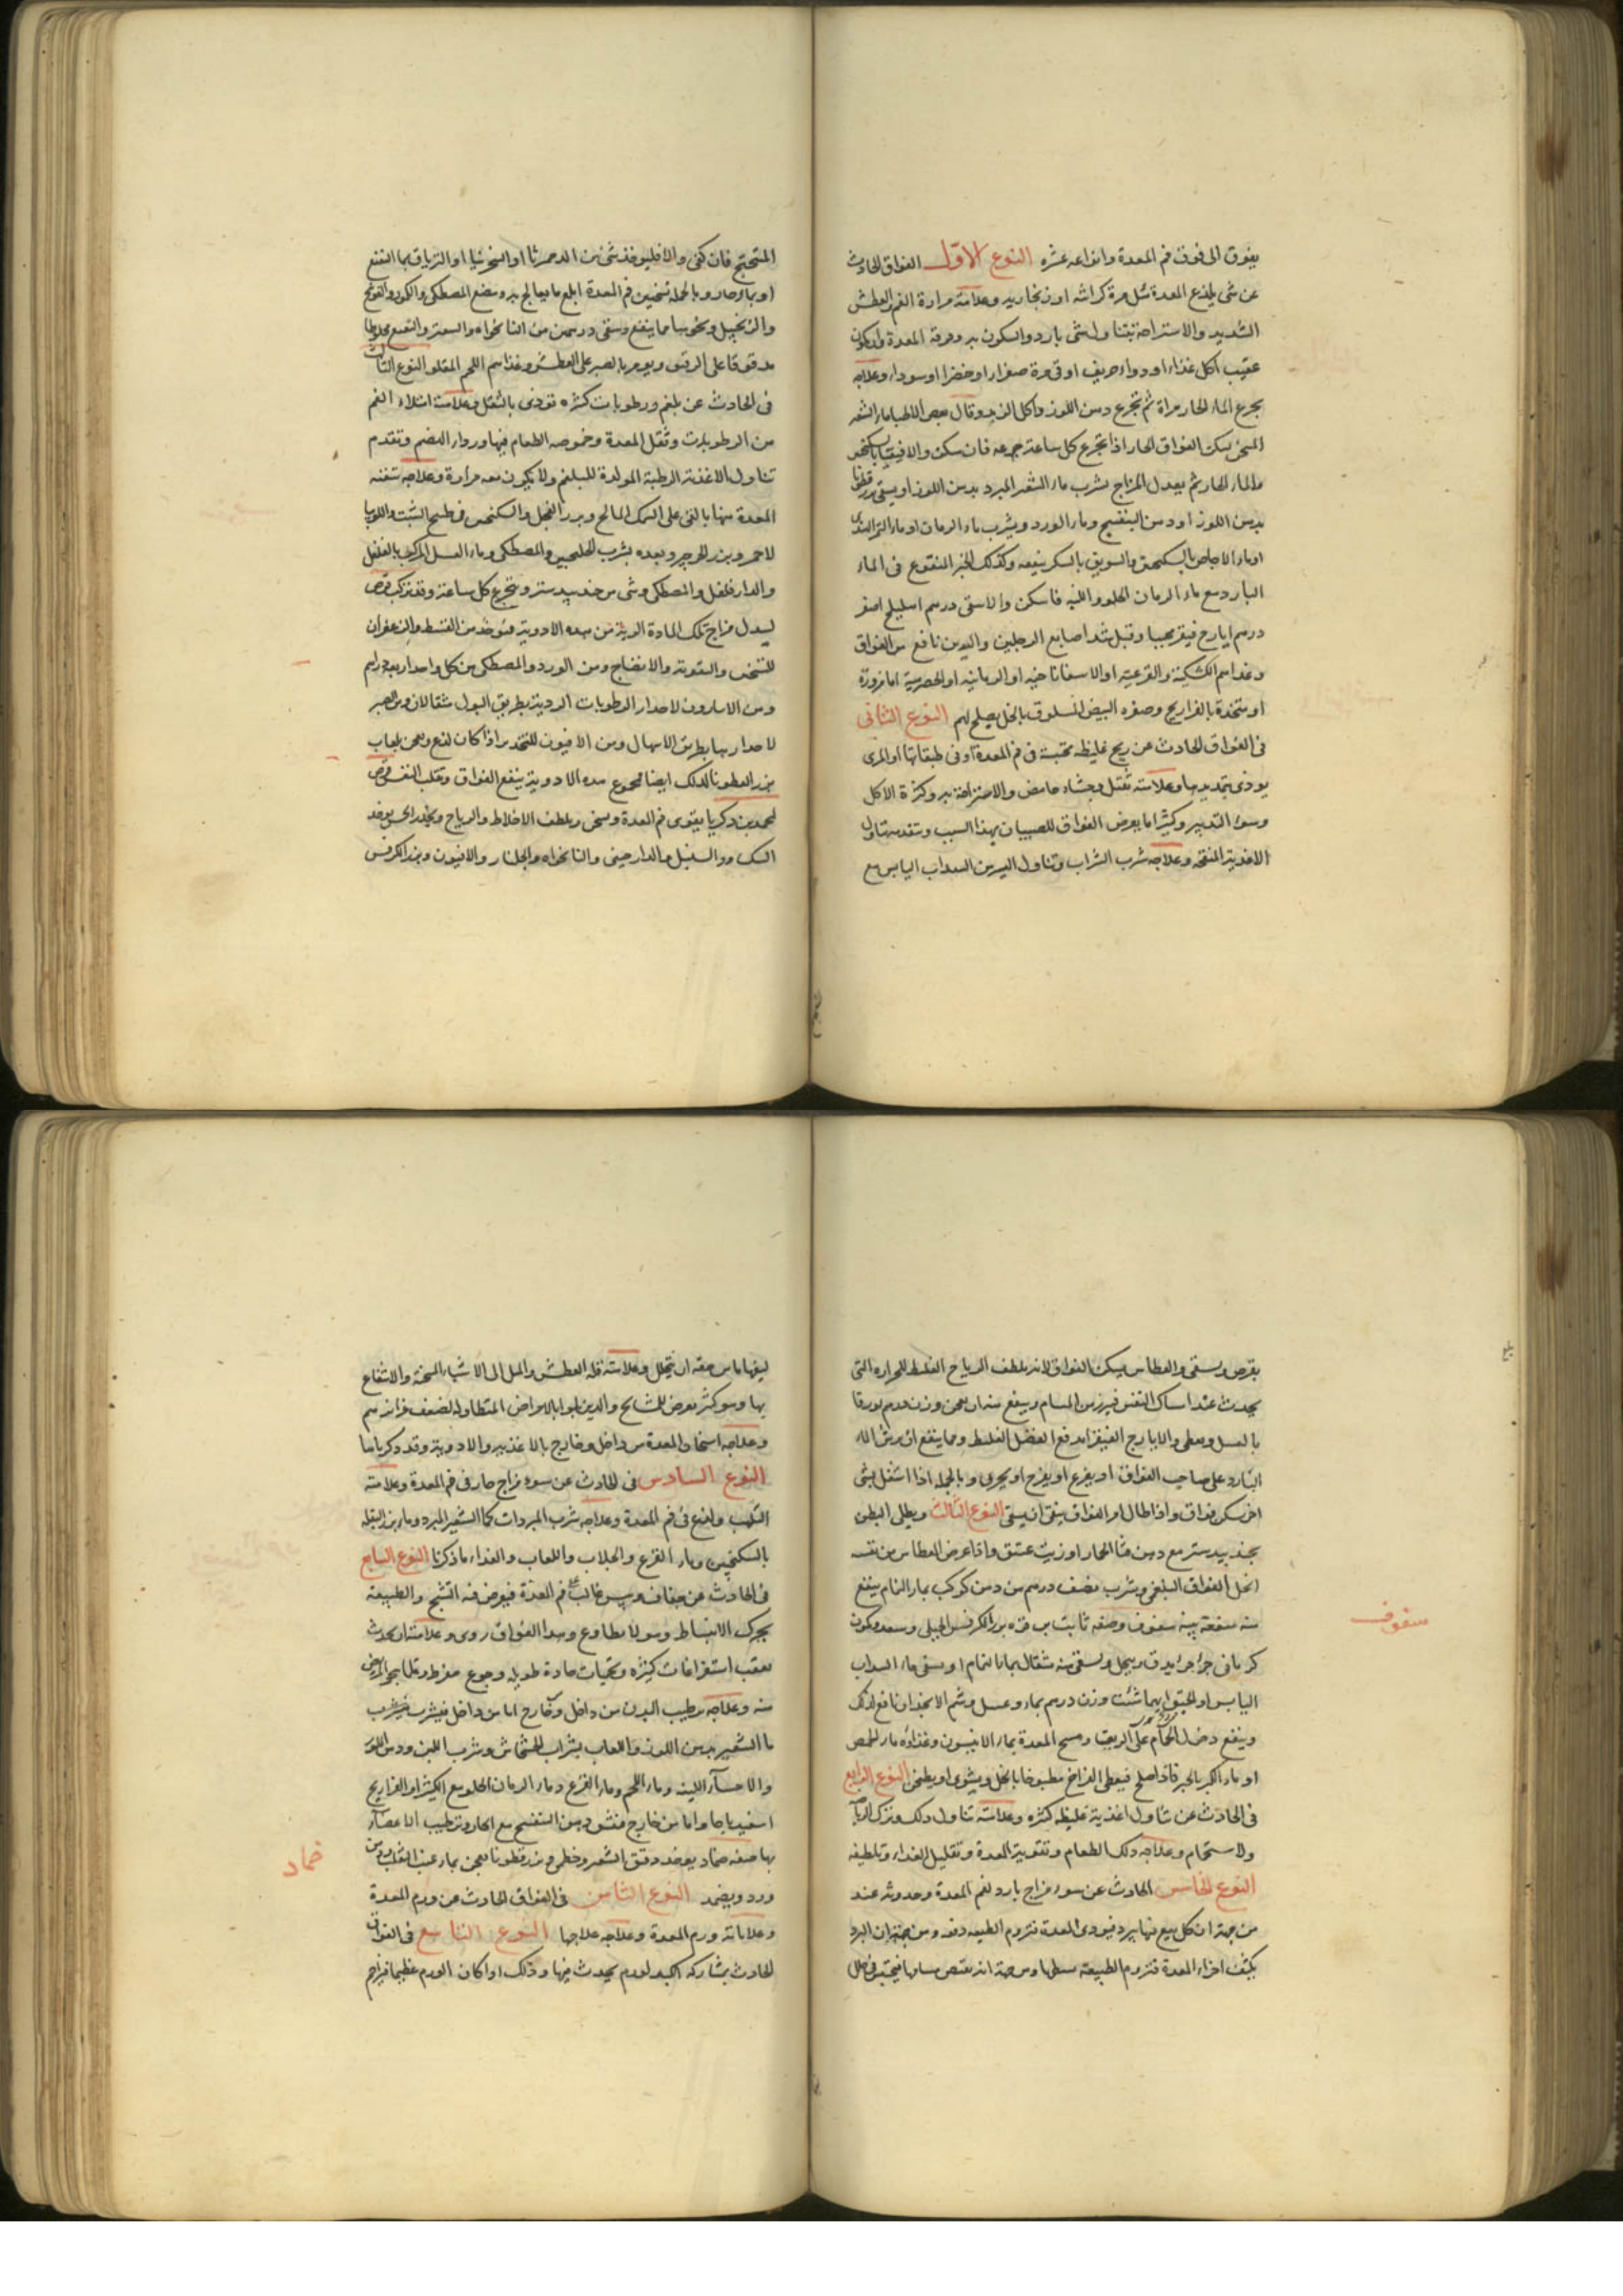 يفوق الى فوق فم المعدة وانواعه عشره النوع الاول الفواق الحادث
عن شى يلذع المعدة مثل مرة كراثيه او زنجاريه وعلامته مرارة الفم والعطش
الشديد والاستراحة بتناول شى بارد والسكون به وحرقة المعدة وان يكون
عقيب اكل غذاء او دواء حريف او قى مرة صفرا او خضرا او سوداء وعلاجه
يجرع الماء الحار مراة ثم تجرع دهن اللوز واكل الزبد وقال بعض الاطبا ماء الشعير
المسخن يسكن الفواق الحار اذا تجرع كل ساعة جرعه فان سكن والا فيتقيا بالسكنجبين
والماء الحار ثم يعدل المزاج بشرب ماء الشعير المبرد بدهن اللوز او يسقى بزرقطونا
بدهن اللوز او دهن البنفسج وماء الورد ويشرب ماء الرمان او ماء التمر الهندى
او ماء الاجاص بالسكنجبين والسويق بالسكر ينفعه وكذلك الخبز المنقوع فى الماء
البارد مع ماء الرمان الحلو واللينه فاسكن والاسقى درهم اهليلج اصفر
درهم ايارج فيقرا محببا وقيل شد اصابع الرجلين واليدين نافع من الفواق
وغذاهم الكشكية والقرعيه او الاسفاناخيه او الرمانيه او الحصرمية اما مزورة
او متخذة بالفراريج وصفره البيض المسلوق بالخل يصلح لهم النوع الثانى
فى الفواق الحادث عن ريح غليظه محتبسة فى فم المعدة او فى طبقاتها او المرى
يوذى بتمديدها وعلامته تقتل وجشاء حامض والاستراحة به وكثرة الاكل
وسوء التدبير وكثيرا ما يعرض الفواق للصبيان بهذا السبب وتقدمه تناول
الاغذية المنفخه وعلاجه شرب الشراب وتناول اليسير من السداب اليابس مع
المتحنج فان كفى والا فليوخذ شى من الدحمرثا او السجزنيا او الترياق بما النعنع
او بماء حار وبالجملة تسخين فم المعدة ابلغ ما يعالج به ومضغ المصطكى والكمون والفوتنج
والزنجبيل ونحوها مما ينفع وسقى درهمين من النانخواه والسعتر والنعنع مخلوطا
مدقوقا على الريق ويومر بالصبر على العطش وغذاهم اللحم المقلو النوع الثالث
فى الحادث عن بلغم ورطوبات كثيره توذى بالثقل وعلامته امتلاء الفم
من الرطوبات وثقل المعدة وحموضه الطعام فيها ورداء الهضم وتقدم
تناول الاغذية الرطبة المولدة للبلغم ولا يكون معه مرارة وعلاجه تنقيه
المعدة منها بالقى على السمك المالح وبزر الفجل والسكنجبين فى طبيخ الشبت واللوبيا
الاحمر وبزر الجرجير وبعده بشرب الجلنجبين والمصطكى وماء العسل المركب بالفلفل
والدار فلفل والمصطكى وشى من جندبيدستر ويتجرع كل ساعة وقد تركب قرص
ليبدل مزاج تلك المادة الردية من هذه الادوية فيوخذ من القسط والزعفران
للتسخين والتقوية والانضاج ومن الورد والمصطكى من كل واحد اربعة دراهم
ومن الاسارون لاحدار الرطوبات الردية بطريق البول مثقالان ومن الصبر
لاحدارها بطريق الاسهال ومن الافيون للتخدير اذا كان لذع ويعجن بلعاب
بزر القطونا لذلك ايضا مجموع هذه الادوية ينفع الفواق وتقلب النفس قرص
لمحمد بن زكريا يقوى فم المعدة ويسخن ويلطف الاخلاط والرياح ويخدر الحس يوخذ
السك والسنبل والدارصينى والنانخواه والجلنار والافيون وبزر الكرفس
يقرص ويسقى والعطاس يسكن الفواق لانه يلطف الرياح الغليظه للحراره التى
يحدث عند امساك النفس فيبرز من المسام وينفع منه ان يعجن وزن درهم بورقا
بالعسل ويعطى والايارج الفيقرا يدفع الفضل الغليظ ومما ينفع ان يرش الماء
البارد على صاحب الفواق او يفزع او يفرح او يحرى وبالجمله اذا اشتغل بشى
اخر سكن فواق واذا طال امر الفواق ينبغى ان يسقى النوع الثالث ويطلى البطن
بجندبيدستر مع دهن قثا الحمار او زيت عتيق واذا عرض العطاس من نفسه
انحل الفواق البلغمى وشرب نصف درهم من دهن كركب بماء النمام ينفع
منه منفعة بينه سفوف وصفه ثابت بن قره بزر الكرفس الجبلى وسعد وكمون
كرمانى جزا جزا يدق وينخل ويسقى منه مثقال بماء النمام او يسقى ماء السداب
اليابس او الحبق ايهما شئت وزن درهم بماء وعسل وشم الانجدان نافع لذلك
وينفع دخول الحمام على الريق ومسح المعدة بماء الانيسون وغذاؤه ماء الحمص
سفوف
او ماء الكبر بالخبز فاذا صلح فيعطى الفراخ مطبوخا بالخل ويشوى او يطجن النوع الرابع
فى الحادث عن تناول اغذية غليظه كثره وعلامته تناول ذلك وترك الرياضة
والاستحمام وعلاجه ذلك الطعام وتنقية المعدة وتقليل الغذاء وتلطيفه
النوع الخامس الحادث عن سوء مزاج بارد لفم المعدة وحدوثه عند
من جهة ان كل يبيع فيها يبرد فيوذى المعدة فتروم الطبيعه دفعه ومن جهة ان البرد
يكثف اجزاء المعدة فتروم الطبيعه بسطها ومن جهة انه يقبض مسامها فيحتبس فى خلل
ليفها ما من حقه ان يتحلل وعلامته قلة العطش والميل الى الاشياء المسخنة والانتفاع
بها وهو كثير يعرض للمشايخ والذين بلوا بالامراض المتطاوله لضعف حرارتهم
وعلاجه اسخان المعدة من داخل وخارج بالاغذيه والادوية وقد ذكرناها
النوع السادس فى الحادث عن سوء مزاج حار فى فم المعدة وعلامته
التلهب ولذع فى فم المعدة وعلاجه شرب المبردات كماء الشعير المبرد وماء بزر البقله
بالسكنجبين وماء القرع والجلاب واللعاب والغذاء ما ذكرنا النوع السابع
فى الحادث عن جفاف ويبس غالب على فم المعدة فيعرض فيه التشنج والطبيعه
يحرك الانبساط وهو لا يطاوع وهذا الفواق ردى وعلامته ان يحدث
بعقب استفراغات كثيره وحميات حادة طويله وجوع مفرط وقلما ينجو المريض
منه وعلاجه ترطيب البدن من داخل وخارج اما من داخل فبشرب
ما الشعير بدهن اللوز واللعاب بشراب الخشخاش وشرب اللبن ودهن اللوز
والاحساء اللينه وماء اللحم وماء القرع وماء الرمان الحلو مع الكثيرا والفراريج
اسفيدباجا واما من خارج فبتنشق دهن البنفسج مع الحار وترطيب الاعضاء
بها صفه ضماد يوخذ دقيق الشعير وخطمى وبزرقطونا يعجن بماء عنب الثعلب ودهن
ضماد
ورد ويضمد النوع الثامن فى الفواق الحادث عن ورم المعدة
وعلاماته ورم المعدة وعلاجه علاجها النوع التاسع فى الفواق
الحادث بمشاركه الكبد لورم يحدث فيها وذلك اذا كان الورم عظيما فيزاحم